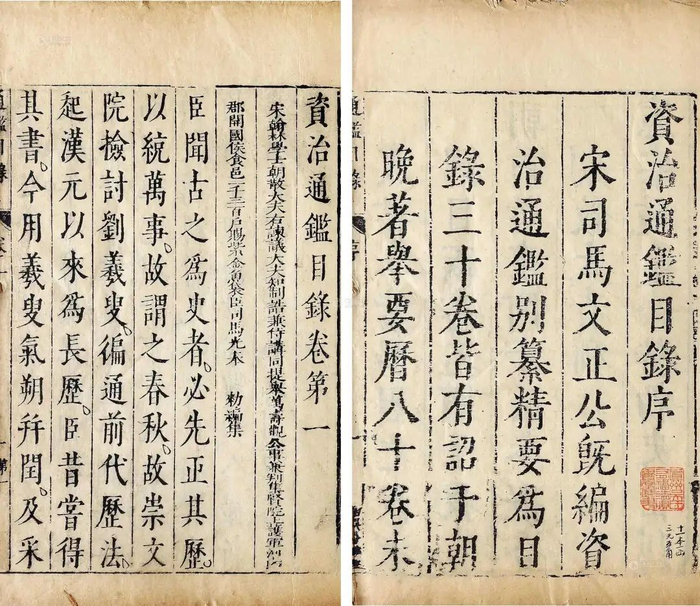 資治通鑑目錄序
宋司馬文正公旣編資
治通鑑别纂精要爲目
錄三十卷皆有詔于朝
晚著舉要曆八十卷未
通鑑目錄
序
資治通鑑目錄卷第一
宋翰林學士朝散大夫右諫議大夫知制誥兼侍講同提舉萬壽觀公事兼判集賢院上護軍河內
郡開國侯食邑一千三百戶賜紫金魚袋臣司馬光奉 勅編集
臣聞古之爲史者必先正其歷
以統萬事故謂之春秋故崇文
院檢討劉羲叟徧通前代歷法
起漢元以來爲長歷臣昔嘗得
其書今用羲叟氣朔并閏及采
通鑑目錄
卷一